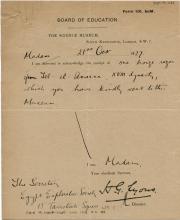 Form 101, ScM.
BOARD OF EDUCATION.
THE SCIENCE MUSEUM,
SOUTH KENSINGTON, LONDON, S.W.7.
21st Oct 1927.
Madam,
I am directed to acknowledge the receipt of one bronze razor
from Tel-el-Amarna XVIII dynasty,
which you have kindly sent to the
Museum.
I am,
Madam,
Your obedient Servant,
H. G. Lyons
Director.
The Secretary
Egypt Exploration Society
13 Tavistock Square